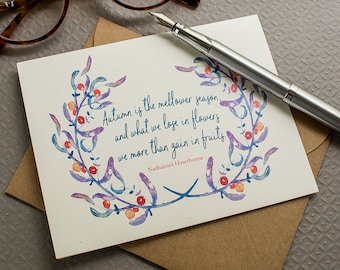 Autumn is the mellower season,
and what we lose in flowers
we more than gain in fruits
Nathaniel Hawthorne